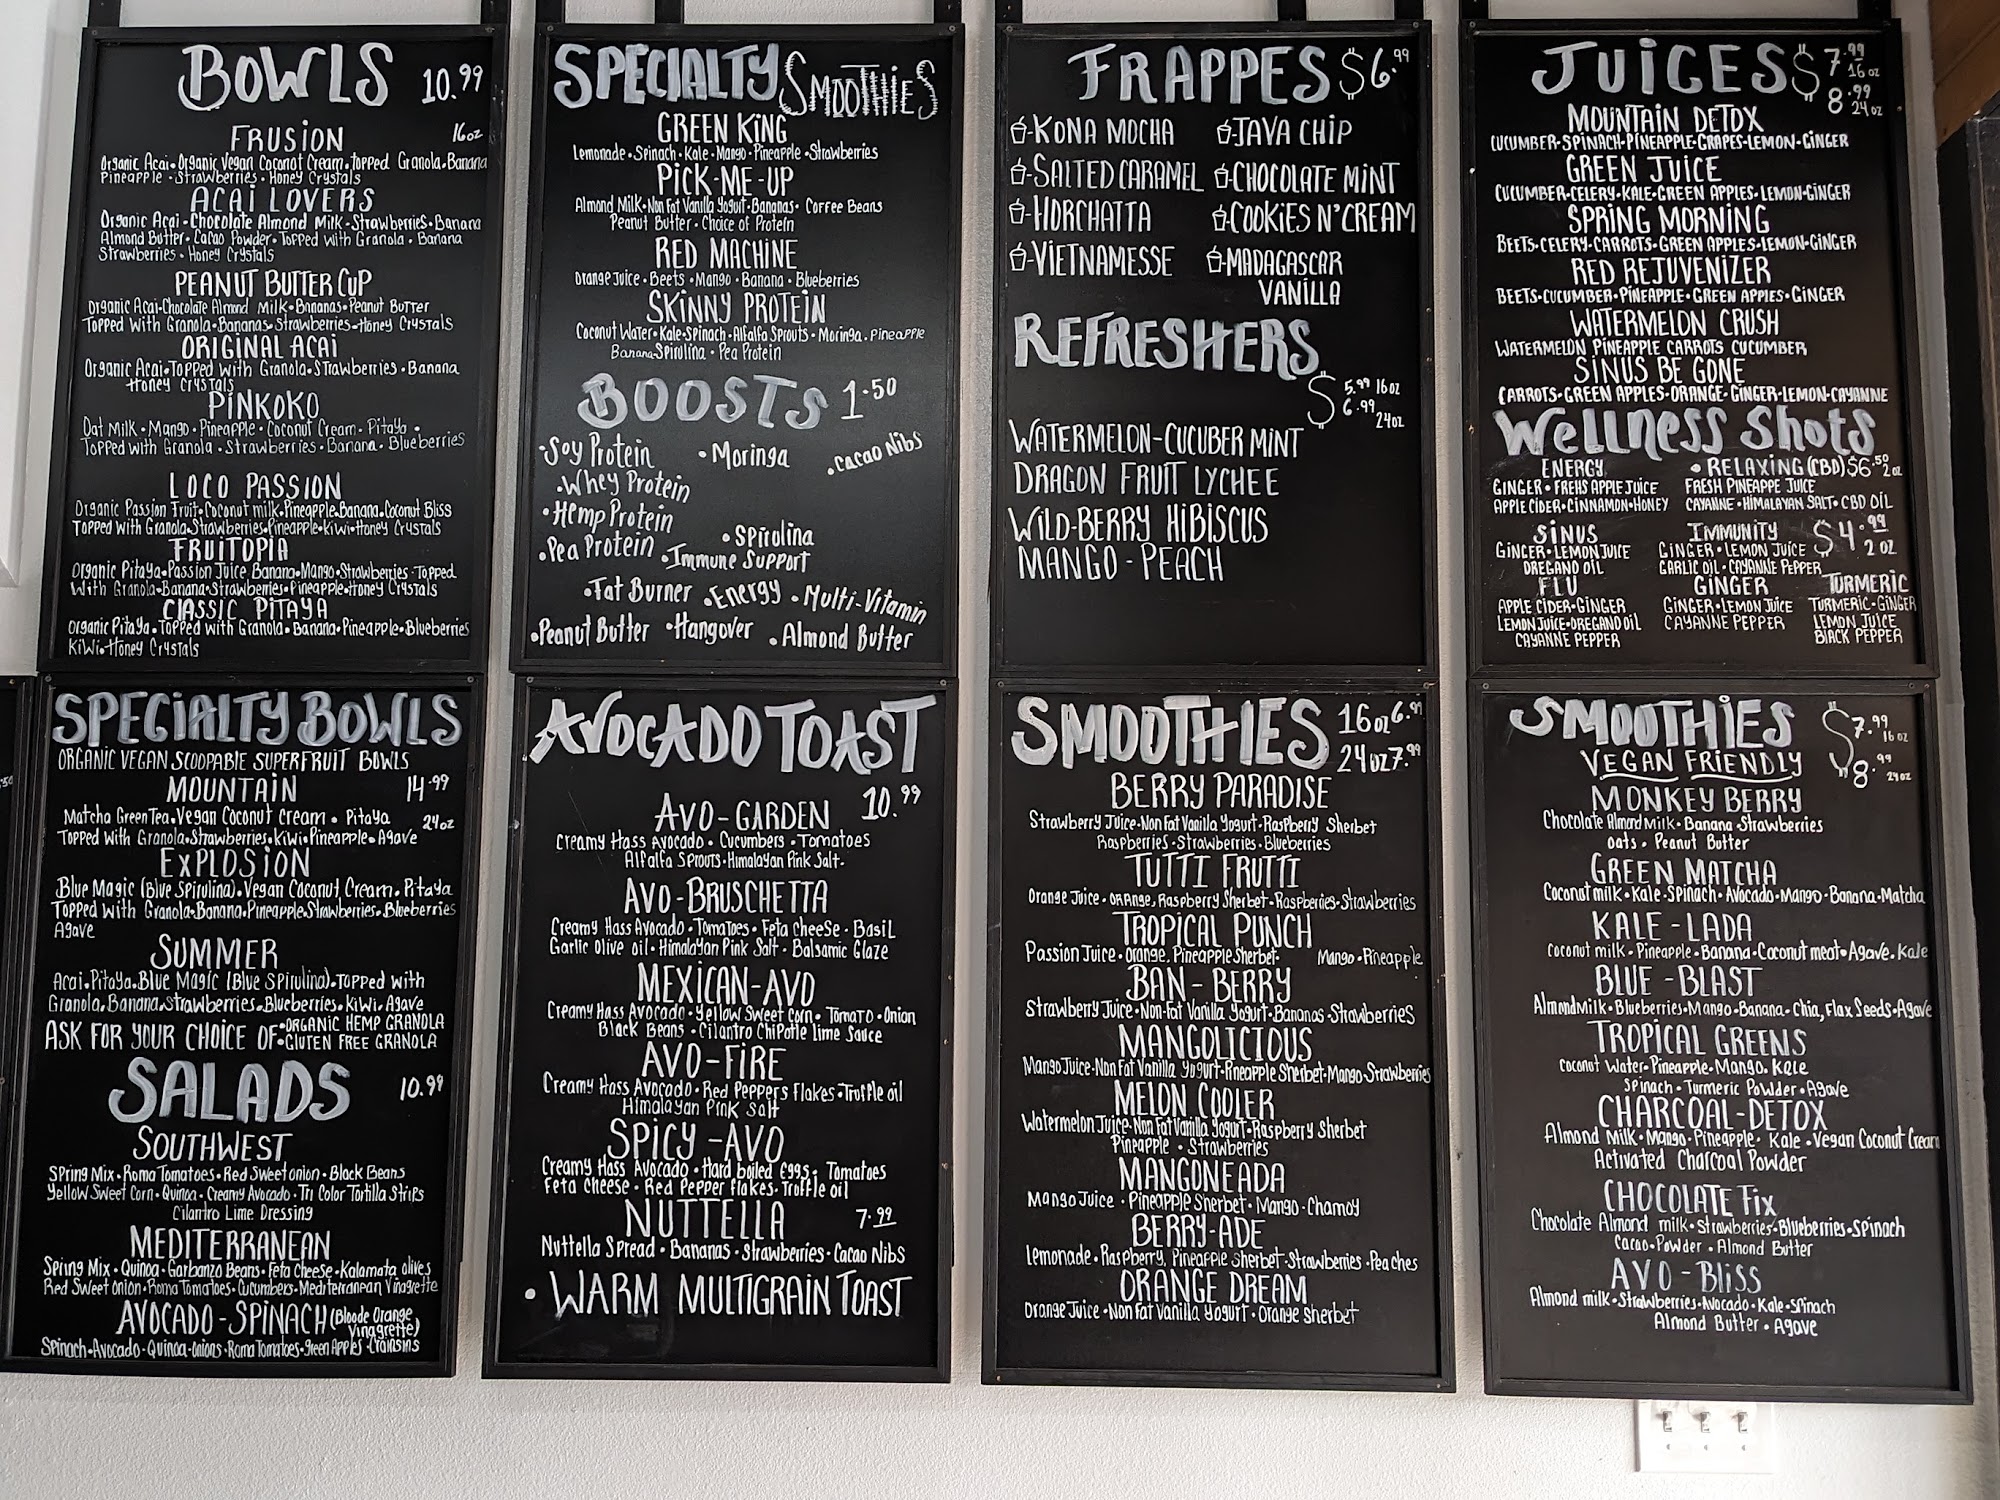 BOWLS 10.99
FRUSION 16oz
Organic Acai • Organic Vegan Coconut Cream • Topped Granola • Banana
Pineapple • Strawberries • Honey Crystals
ACAI LOVERS
Organic Acai • Chocolate Almond Milk • Strawberries • Banana
Almond Butter • Cacao Powder • Topped With Granola • Banana
Strawberries • Honey Crystals
PEANUT BUTTER CUP
Organic Acai • Chocolate Almond Milk • Bananas • Peanut Butter
Topped With Granola • Bananas • Strawberries • Honey Crystals
ORIGINAL ACAI
Organic Acai • Topped With Granola • Strawberries • Banana
Honey Crystals
PINKOKO
Oat Milk • Mango • Pineapple • Coconut Cream • Pitaya •
Topped with Granola • Strawberries • Banana • Blueberries
LOCO PASSION
Organic Passion Fruit • Coconut milk • Pineapple • Banana • Coconut Bliss
Topped With Granola • Strawberries • Pineapple • Kiwi • Honey Crystals
FRUITOPIA
Organic Pitaya • Passion Juice, Banana • Mango • Strawberries • Topped
With Granola • Banana • Strawberries • Pineapple • Honey Crystals
CLASSIC PITAYA
Organic Pitaya • Topped with Granola • Banana • Pineapple • Blueberries
Kiwi • Honey Crystals
SPECIALTY SMOOTHIES
GREEN KING
Lemonade • Spinach • Kale • Mango • Pineapple • Strawberries
PICK-ME-UP
Almond Milk • Non Fat Vanilla Yogurt • Bananas • Coffee Beans
Peanut Butter • Choice of Protein
RED MACHINE
Orange Juice • Beets • Mango • Banana • Blueberries
SKINNY PROTEIN
Coconut Water • Kale • Spinach • Alfalfa Sprouts • Moringa • Pineapple
Banana • Spirulina • Pea Protein
BOOSTS 1.50
• Soy Protein • Moringa • Cacao Nibs
• Whey Protein
• Hemp Protein • Spirulina
• Pea Protein • Immune Support
• Fat Burner • Energy • Multi-Vitamin
• Peanut Butter • Hangover • Almond Butter
FRAPPES $6.99
-KONA MOCHA -JAVA CHIP
-SALTED CARAMEL -CHOCOLATE MINT
-HORCHATTA -COOKIES N' CREAM
-VIETNAMESSE -MADAGASCAR
VANILLA
REFRESHERS
$ 5.99 16oz
6.99 24oz
WATERMELON-CUCUBER MINT
DRAGON FRUIT LYCHEE
WILD-BERRY HIBISCUS
MANGO - PEACH
JUICES $ 7.99 16oz
8.99 24oz
MOUNTAIN DETOX
CUCUMBER • SPINACH • PINEAPPLE • GRAPES • LEMON • GINGER
GREEN JUICE
CUCUMBER • CELERY • KALE • GREEN APPLES • LEMON • GINGER
SPRING MORNING
BEETS • CELERY • CARROTS • GREEN APPLES • LEMON • GINGER
RED REJUVENIZER
BEETS • CUCUMBER • PINEAPPLE • GREEN APPLES • GINGER
WATERMELON CRUSH
WATERMELON PINEAPPLE CARROTS CUCUMBER
SINUS BE GONE
CARROTS • GREEN APPLES • ORANGE • GINGER • LEMON • CAYANNE
WELLNESS SHOTS
ENERGY • RELAXING (CBD) $6.50 2oz
GINGER • FREHS APPLE JUICE FRESH PINEAPPE JUICE
APPLE CIDER • CINNAMON • HONEY CAYANNE • HIMALAYAN SALT • CBD OIL
SINUS IMMUNITY $4.99
GINGER • LEMON JUICE GINGER • LEMON JUICE 2 OZ
OREGANO OIL GARLIC OIL • CAYANNE PEPPER
FLU GINGER TURMERIC
APPLE CIDER • GINGER GINGER • LEMON JUICE TURMERIC • GINGER
LEMON JUICE • OREGANO OIL CAYANNE PEPPER LEMON JUICE
CAYANNE PEPPER BLACK PEPPER
SPECIALTY BOWLS
ORGANIC VEGAN SCOOPABLE SUPERFRUIT BOWLS
MOUNTAIN 14.99
Matcha Green Tea • Vegan Coconut Cream • Pitaya 24oz
Topped With Granola • Strawberries • Kiwi • Pineapple • Agave
EXPLOSION
Blue Magic (Blue Spirulina) • Vegan Coconut Cream • Pitaya
Topped With Granola • Banana • Pineapple • Strawberries • Blueberries
Agave
SUMMER
Acai • Pitaya • Blue Magic (Blue Spirulina) • Topped with
Granola • Banana • Strawberries • Blueberries • Kiwi • Agave
ASK FOR YOUR CHOICE OF • ORGANIC HEMP GRANOLA
• GLUTEN FREE GRANOLA
SALADS 10.99
SOUTHWEST
Spring Mix • Roma Tomatoes • Red Sweet onion • Black Beans
Yellow Sweet Corn • Quinoa • Creamy Avocado • Tri Color Tortilla Strips
Cilantro Lime Dressing
MEDITERRANEAN
Spring Mix • Quinoa • Garbanzo Beans • Feta Cheese • Kalamata olives
Red Sweet onion • Roma Tomatoes • Cucumbers • Mediterranean Vinagrette
AVOCADO - SPINACH (Bloode Orange
Vinagrette)
Spinach • Avocado • Quinoa • onions • Roma Tomatoes • Green Apples • Crainsins
AVOCADO TOAST
AVO - GARDEN 10.99
Creamy Hass Avocado • Cucumbers • Tomatoes
Alfalfa Sprouts • Himalayan Pink Salt •
AVO - BRUSCHETTA
Creamy Hass Avocado • Tomatoes • Feta cheese • Basil
Garlic olive oil • Himalayan Pink Salt • Balsamic Glaze
MEXICAN - AVO
Creamy Hass Avocado • Yellow Sweet Corn • Tomato • Onion
Black Beans • Cilantro Chipotle lime Sauce
AVO - FIRE
Creamy Hass Avocado • Red Peppers flakes • Truffle oil
Himalayan Pink Salt
SPICY - AVO
Creamy Hass Avocado • Hard boiled eggs • Tomatoes
Feta Cheese • Red Pepper flakes • Truffle oil
NUTTELLA 7.99
Nuttella Spread • Bananas • Strawberries • Cacao Nibs
• WARM MULTIGRAIN TOAST
SMOOTHIES 16oz 6.99
24oz 7.99
BERRY PARADISE
Strawberry Juice • Non Fat Vanilla Yogurt • Raspberry Sherbet
Raspberries • Strawberries • Blueberries
TUTTI FRUTTI
Orange Juice • Orange, Raspberry Sherbet • Raspberries • Strawberries
TROPICAL PUNCH
Passion Juice • Orange, Pineapple Sherbet • Mango • Pineapple
BAN - BERRY
Strawberry Juice • Non-Fat Vanilla Yogurt • Bananas • Strawberries
MANGOLICIOUS
Mango Juice • Non Fat Vanilla Yogurt • Pineapple Sherbet • Mango • Strawberries
MELON COOLER
Watermelon Juice • Non Fat Vanilla Yogurt • Raspberry Sherbet
Pineapple • Strawberries
MANGONEADA
Mango Juice • Pineapple Sherbet • Mango • Chamoy
BERRY-ADE
Lemonade • Raspberry, Pineapple Sherbet • Strawberries • Peaches
ORANGE DREAM
Orange Juice • Non Fat Vanilla Yogurt • Orange Sherbet
SMOOTHIES $7.99 16oz
VEGAN FRIENDLY 8.99 24oz
MONKEY BERRY
Chocolate Almond Milk • Banana • Strawberries
Oats • Peanut Butter
GREEN MATCHA
Coconut milk • Kale • Spinach • Avocado • Mango • Banana • Matcha
KALE - LADA
Coconut milk • Pineapple • Banana • Coconut meat • Agave • Kale
BLUE - BLAST
Almond Milk • Blueberries • Mango • Banana • Chia, Flax Seeds • Agave
TROPICAL GREENS
Coconut Water • Pineapple • Mango • Kale
Spinach • Turmeric Powder • Agave
CHARCOAL - DETOX
Almond Milk • Mango • Pineapple • Kale • Vegan Coconut Cream
Activated Charcoal Powder
CHOCOLATE Fix
Chocolate Almond milk • Strawberries • Blueberries • Spinach
Cacao • Powder • Almond Butter
AVO - BLISS
Almond milk • Strawberries • Avocado • Kale • Spinach
Almond Butter • Agave